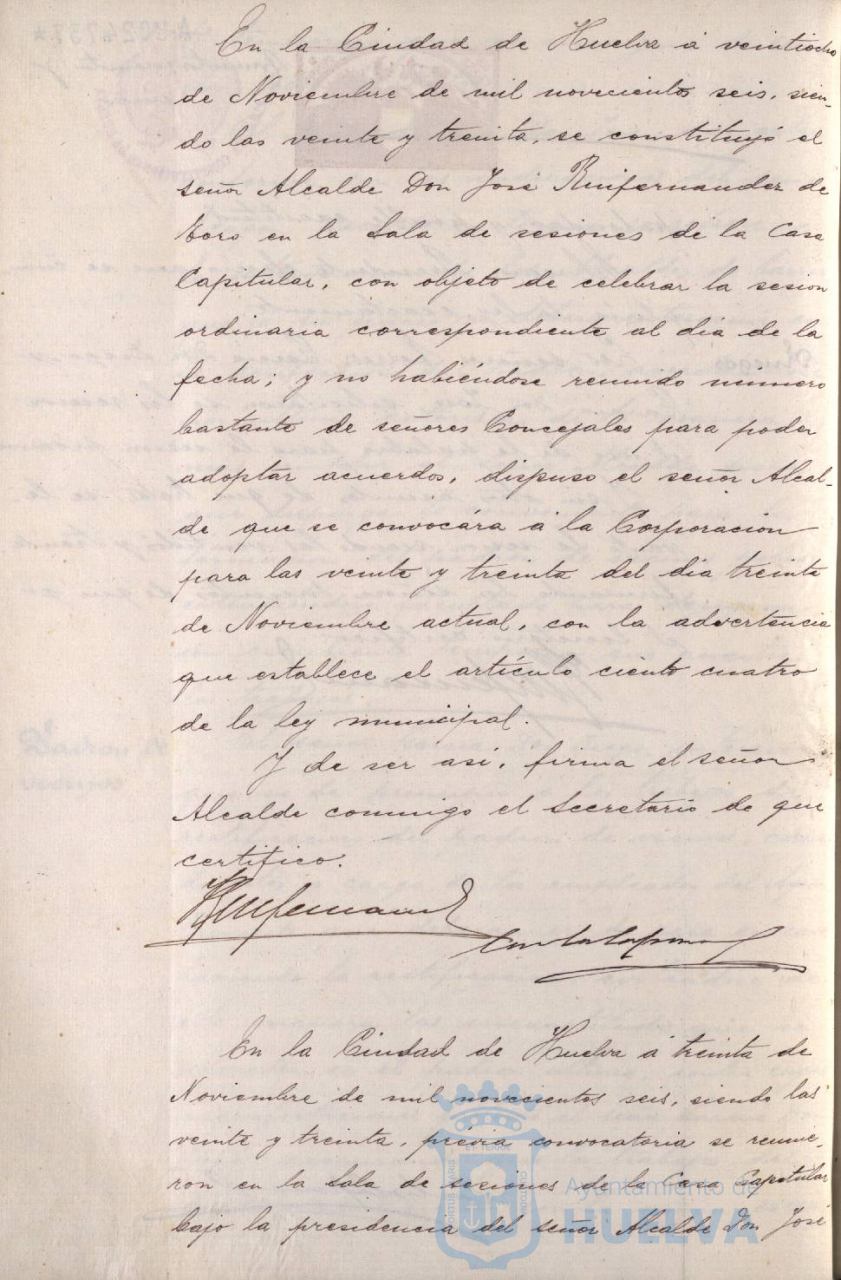 En la Ciudad de Huelva á veintiocho
de Noviembre de mil novecientos seis, sien-
do las veinte y treinta, se constituyó el
señor Alcalde Don José Ruifernandez de
Toro en la Sala de sesiones de la Casa
Capitular, con objeto de celebrar la sesion
ordinaria correspondiente al dia de la
fecha; y no habiéndose reunido número
bastante de señores Concejales para poder
adoptar acuerdos, dispuso el señor Alcal-
de que se convocára á la Corporacion
para las veinte y treinta del dia treinta
de Noviembre actual, con la advertencia
que establece el artículo ciento cuatro
de la ley municipal.
Y de ser asi, firma el señor
Alcalde conmigo el Secretario de que
certifico.
Ruifernandez
En la Ciudad de Huelva á treinta de
Noviembre de mil novecientos seis, siendo las
veinte y treinta, prévia convocatoria se reunie-
ron en la Sala de sesiones de la Casa Capitular
bajo la presidencia del señor Alcalde Don José
Ayuntamiento de
HUELVA